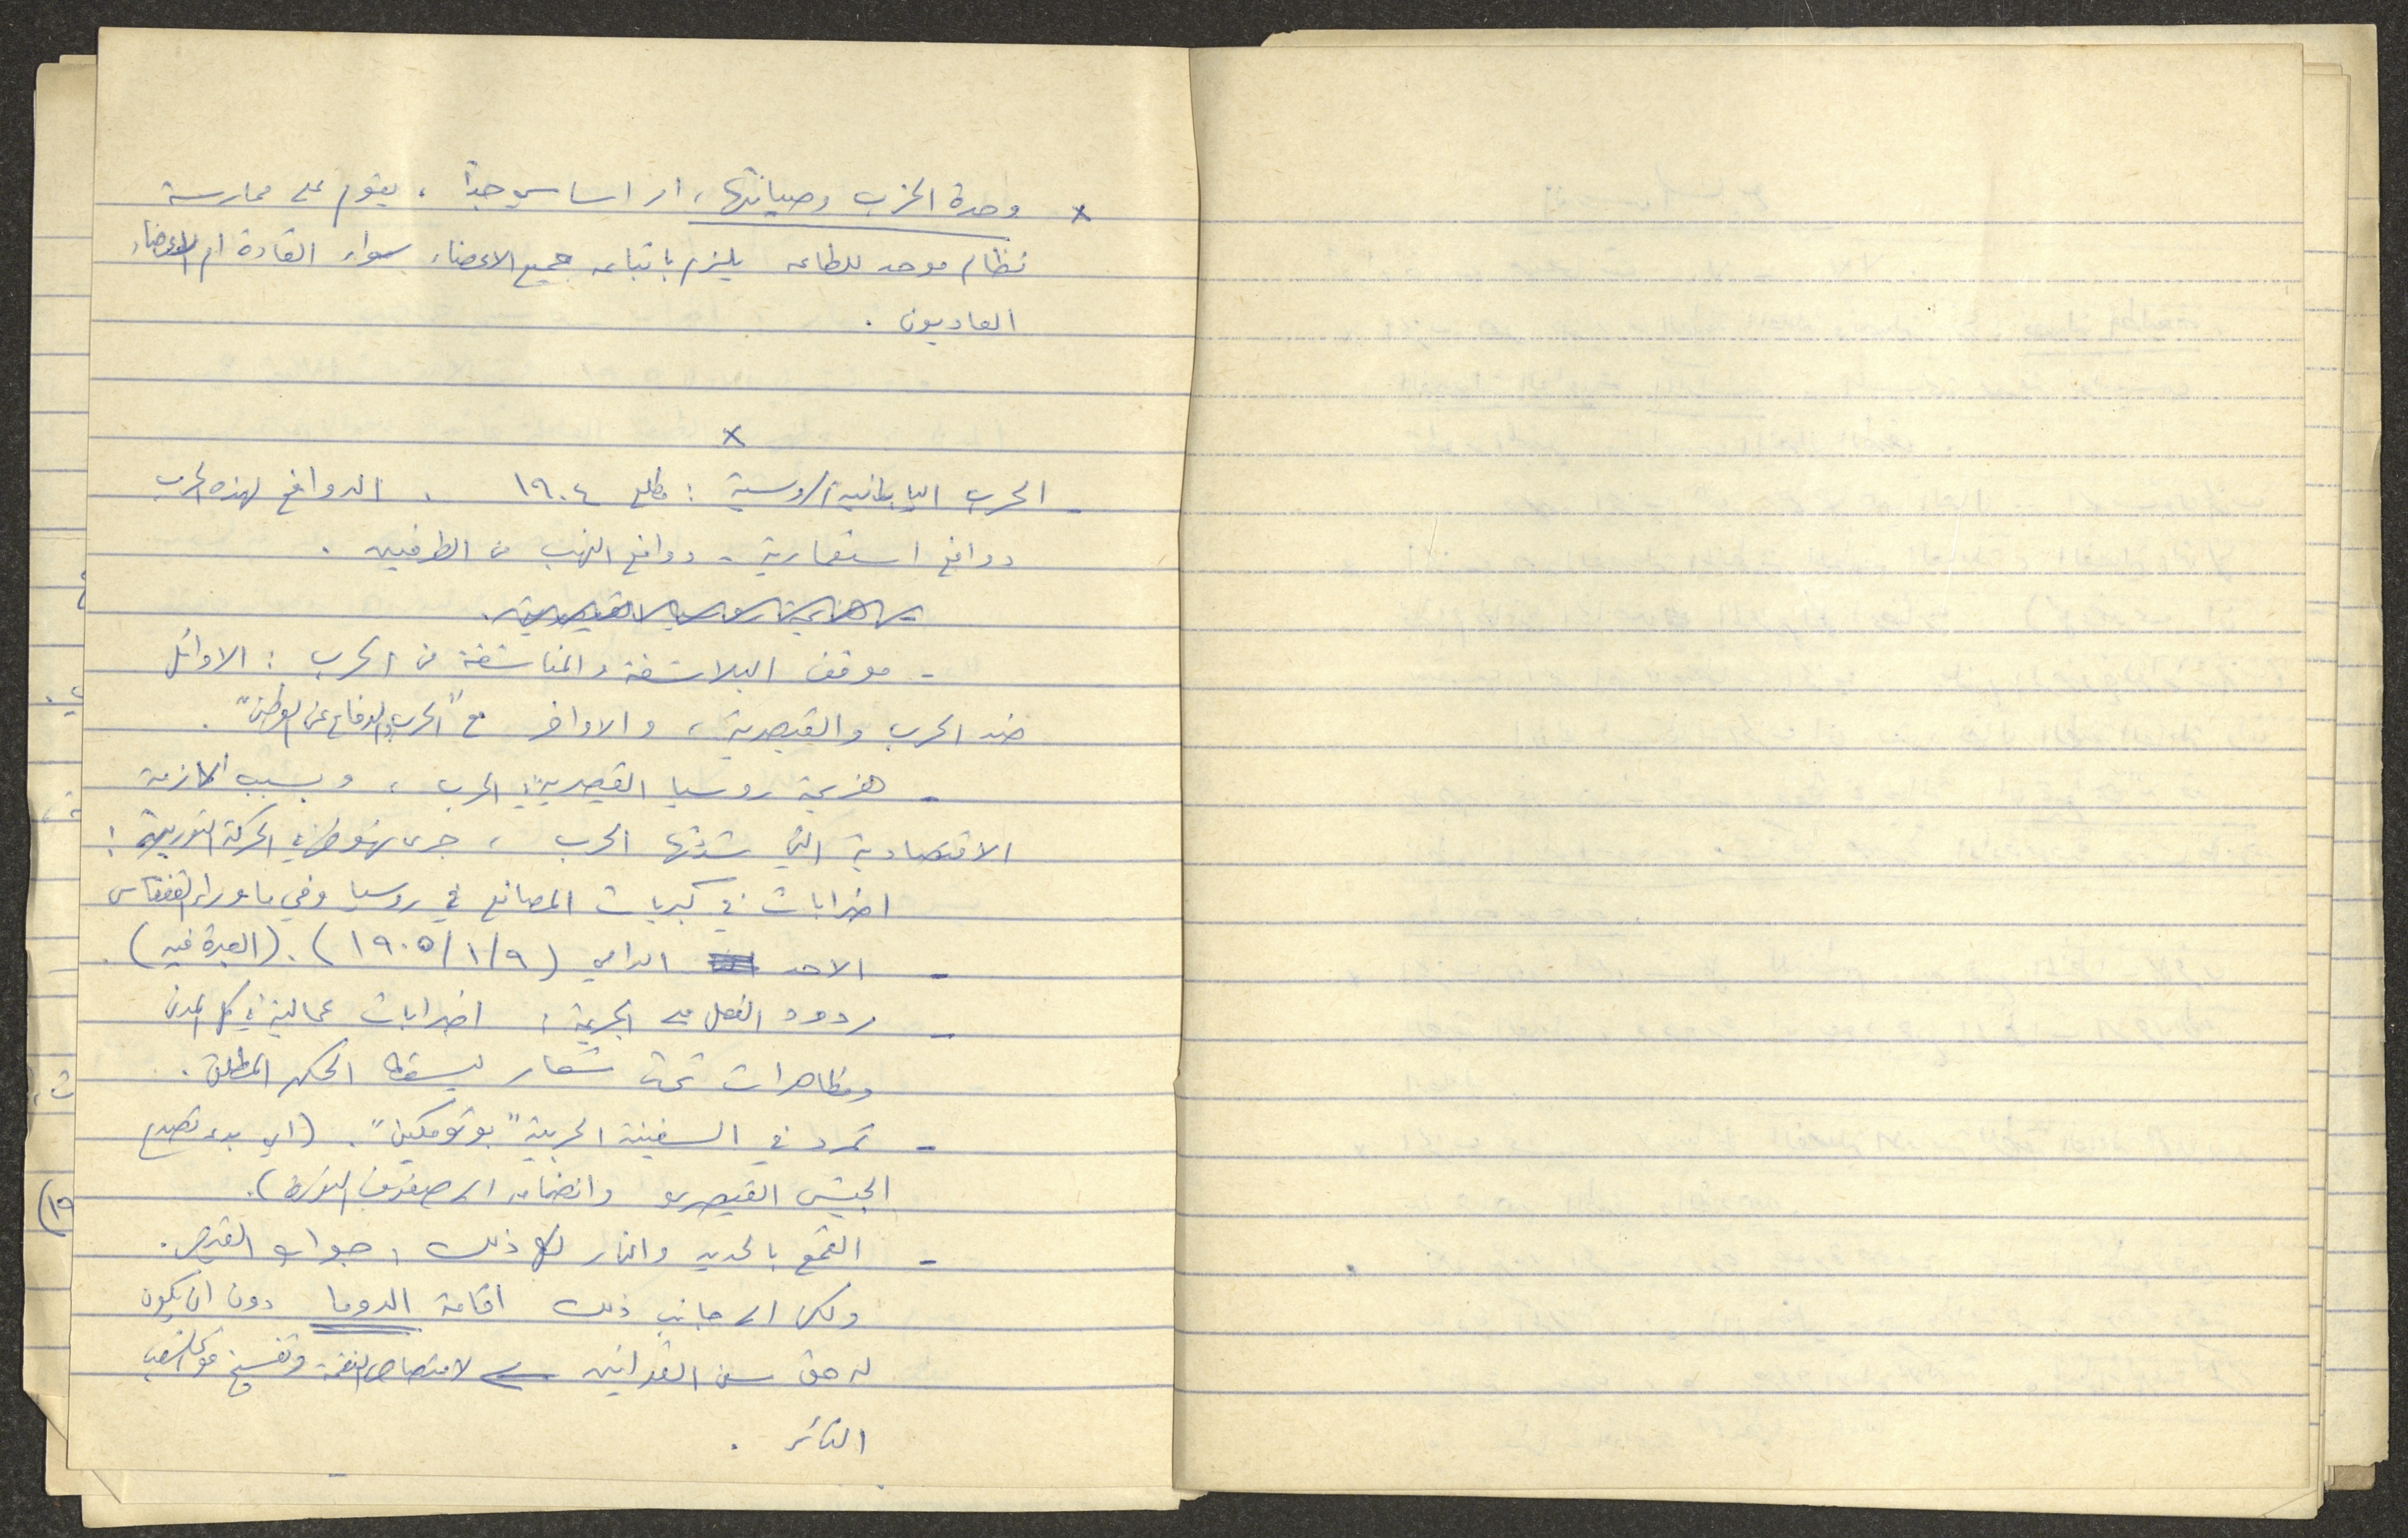 x وحدة الحزب وصيانتها، امر اساسي جداً، يقوم على ممارسة
نظام موحد للطاعه يلزم باتباعه جميع الاعضاء سواء القادة ام الاعضاء
العاديون.
x
- الحرب اليابانية الروسية: مطلع ١٩٠٤. الدوافع لهذه الحرب
دوافع استعمارية - دوافع النهب من الطرفين.
- هزيمة روسيا القيصرية.
- موقف البلاشفة والمناشفة من الحرب: الاوائل
ضد الحرب والقيصرية، والاواخر مع "الحرب والدفاع عن الوطن".
- هزيمة روسيا القيصرية في الحرب، وبسبب الازمة
الاقتصادية التي شدتها الحرب، جرى نهوض في الحركة الثورية:
اضرابات في كبريات المصانع في روسيا وفي ما وراء القفقاس
- الاحد الدامي (١٩٠٥/١/٩). (العبرة فيه).
- ردود الفعل على الجريمة: اضرابات عمالية في كل المدن
ومظاهرات تحت شعار ليسقط الحكم المطلق.
- تمرد في السفينة الحربية "بوتومكين". (اي بدء تصدع
الجيش القيصري وانضمامه الى صفوف الثورة).
- القمع بالحديد والنار لكل ذلك، جواب القيصر.
ولكن الى جانب ذلك اقامة الدوما دون ان يكون
له حق سن القوانين ← لامتصاص النقمة وتفسيخ قوى الشعب
الثائر.